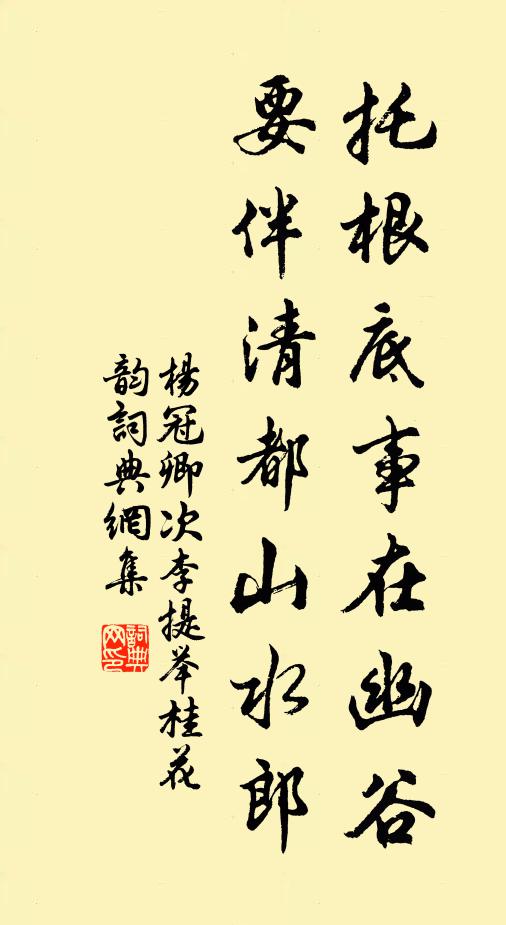 托根底事在幽谷
要伴清都山水郎
楊冠卿次李提举桂花
韵詞典網集
詞典网印